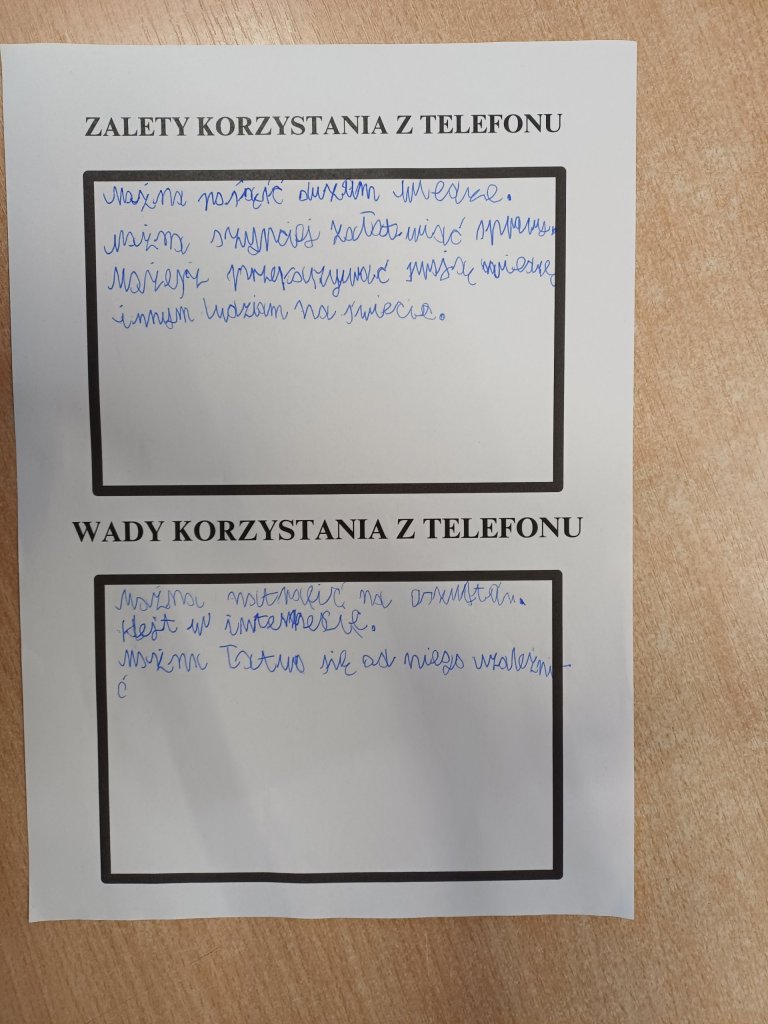 ZALETY KORZYSTANIA Z TELEFONU
można wiedze.
można szypciej załatwiać sprawy.
Możesz przekazywać swoją wiedzę
innym ludziam na świecie.
WADY KORZYSTANIA Z TELEFONU
można natrafić na
Hejt w internecie.
można łatwo się od niego uzależni-
ć